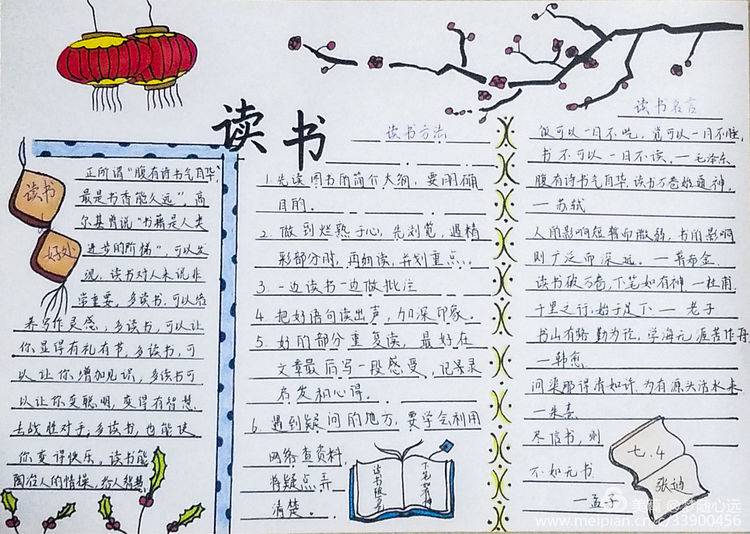 读书
读书
好处
正所谓“腹有诗书气自华，
最是书香能久远”，高
尔基曾说“书籍是人类
进步的阶梯”，可以发
现，读书对人来说非
常重要，多读书，可以培
养写作灵感，多读书，可以让
你显得有礼有节，多读书，可
以让你增加见识，多读书可
以让你变聪明，变得有智慧，
去战胜对手，多读书，也能使
你变得快乐，读书能
陶冶人的情操，给人智慧
读书方法
1.先读图书的简介大纲，要明确
目的。
2.做到烂熟于心，先浏览，遇精
彩部分时，再朗读，并划重点。
3.一边读书一边做批注
4.把好语句读出声，加深印象。
5.好的部分重复读，最好在
文章最后写一段感受，记录录
启发和心得。
6.遇到疑问的地方，要学会利用
网络查资料，
将疑点弄
清楚。
读书破万卷
下笔如有神
读书名言
饭可以一日不吃，觉可以一日不睡，
书不可以一日不读。—毛泽东
腹有诗书气自华，读书万卷始通神。
—苏轼
人的影响短暂而微弱，书的影响
则广泛而深远。—普希金
读书破万卷，下笔如有神—杜甫
千里之行，始于足下—老子
书山有路勤为径，学海无涯苦作舟
—韩愈
问渠那得清如许，为有源头活水来
—朱熹
尽信书，则
不如无书
—孟子
七.4
张迪
美篇 @梦随心远
www.meipian.cn/c/33900456